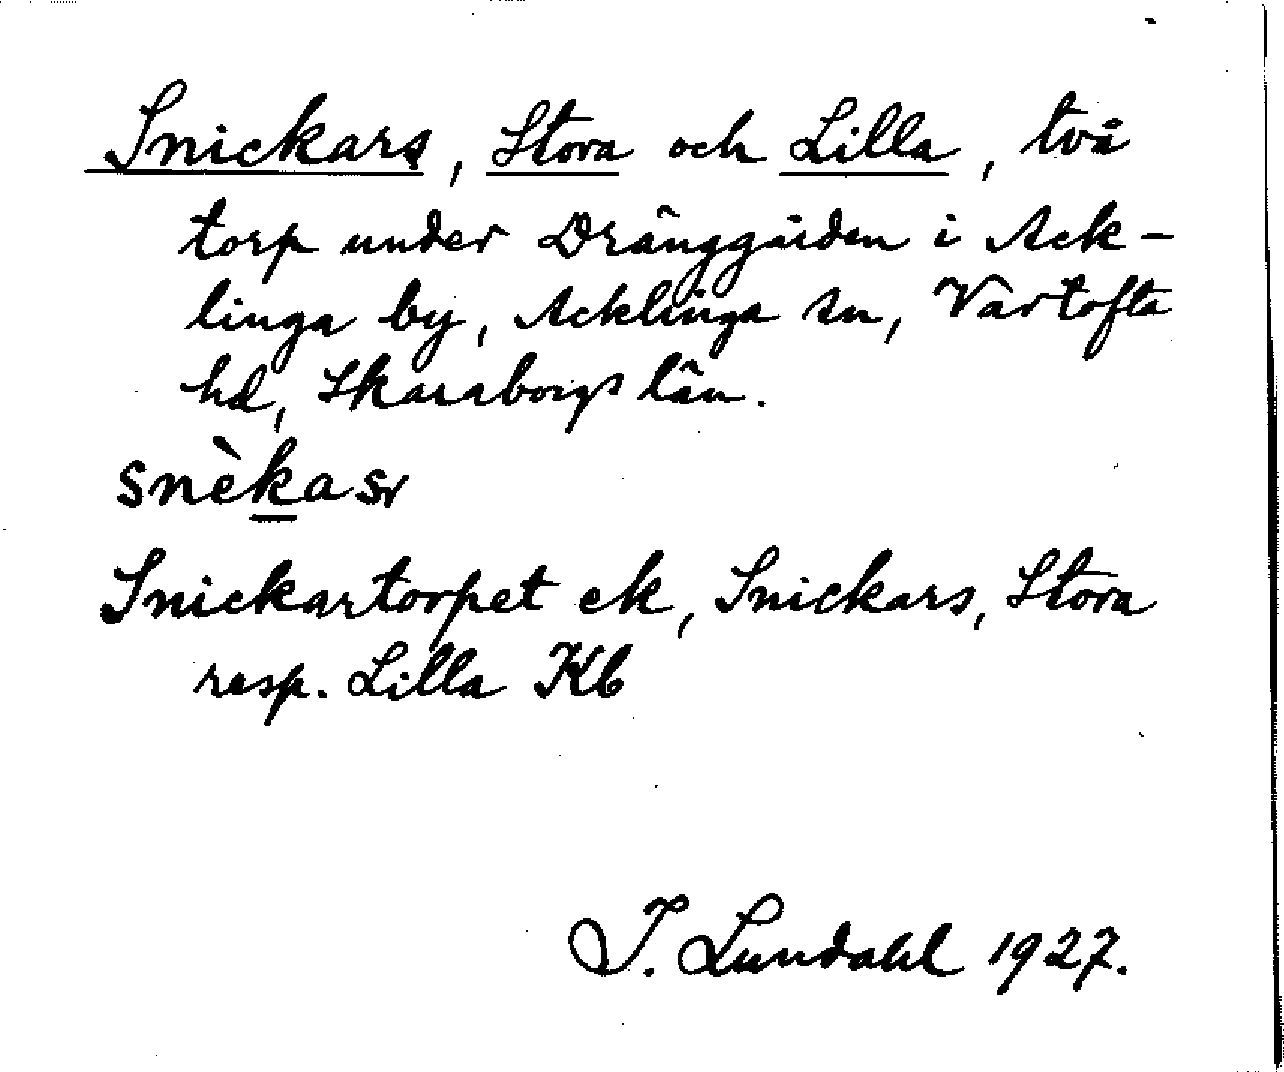 Snickars, Stora och Lilla, två
torp under Dränggården i Ack-
linga by, Acklinga sn, Vartofta
hd, Skaraborgs län.
snèkasr
Snickartorpet ek, Snickars, Stora
resp. Lilla Kb
I. Lundahl 1927.